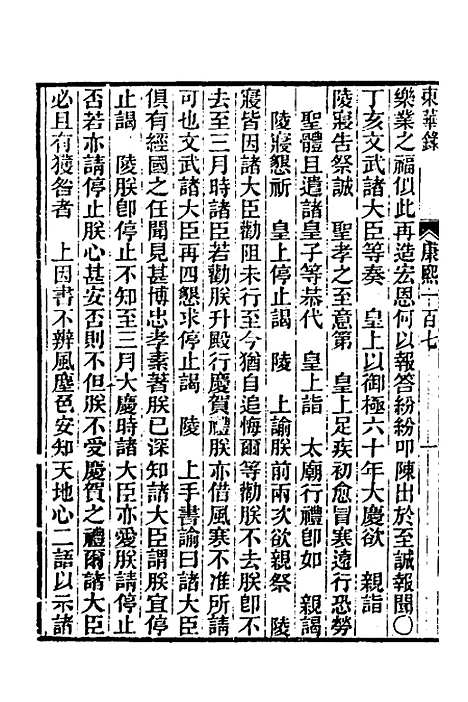 東華錄 康熙一百七 一
樂業之福似此再造宏恩何以報答紛紛叩陳出於至誠報聞〇
丁亥文武諸大臣等奏 皇上以御極六十年大慶欲 親詣
陵寢告祭誠 聖孝之至意第 皇上足疾初愈冒寒遠行恐勞
聖體且遣諸皇子等恭代 皇上詣 太廟行禮卽如 親謁
陵寢懇祈 皇上停止謁 陵 上諭朕前兩次欲親祭 陵
寢皆因諸大臣勸阻未行至今猶自追悔爾等勸朕不去朕卽不
去至三月時諸臣若勸朕升殿行慶賀禮朕亦借風寒不准所請
可也文武諸大臣再四懇求停止謁 陵 上手書諭曰諸大臣
俱有經國之任聞見甚博忠孝素著朕已深知諸大臣謂朕宜停
止謁 陵朕卽停止不知至三月大慶時諸大臣亦愛朕請停止
否若亦請停止朕心甚安否則不但朕不受慶賀之禮爾諸大臣
必且有獲咎者 上因書不辨風塵色安知天地心二語以示諸